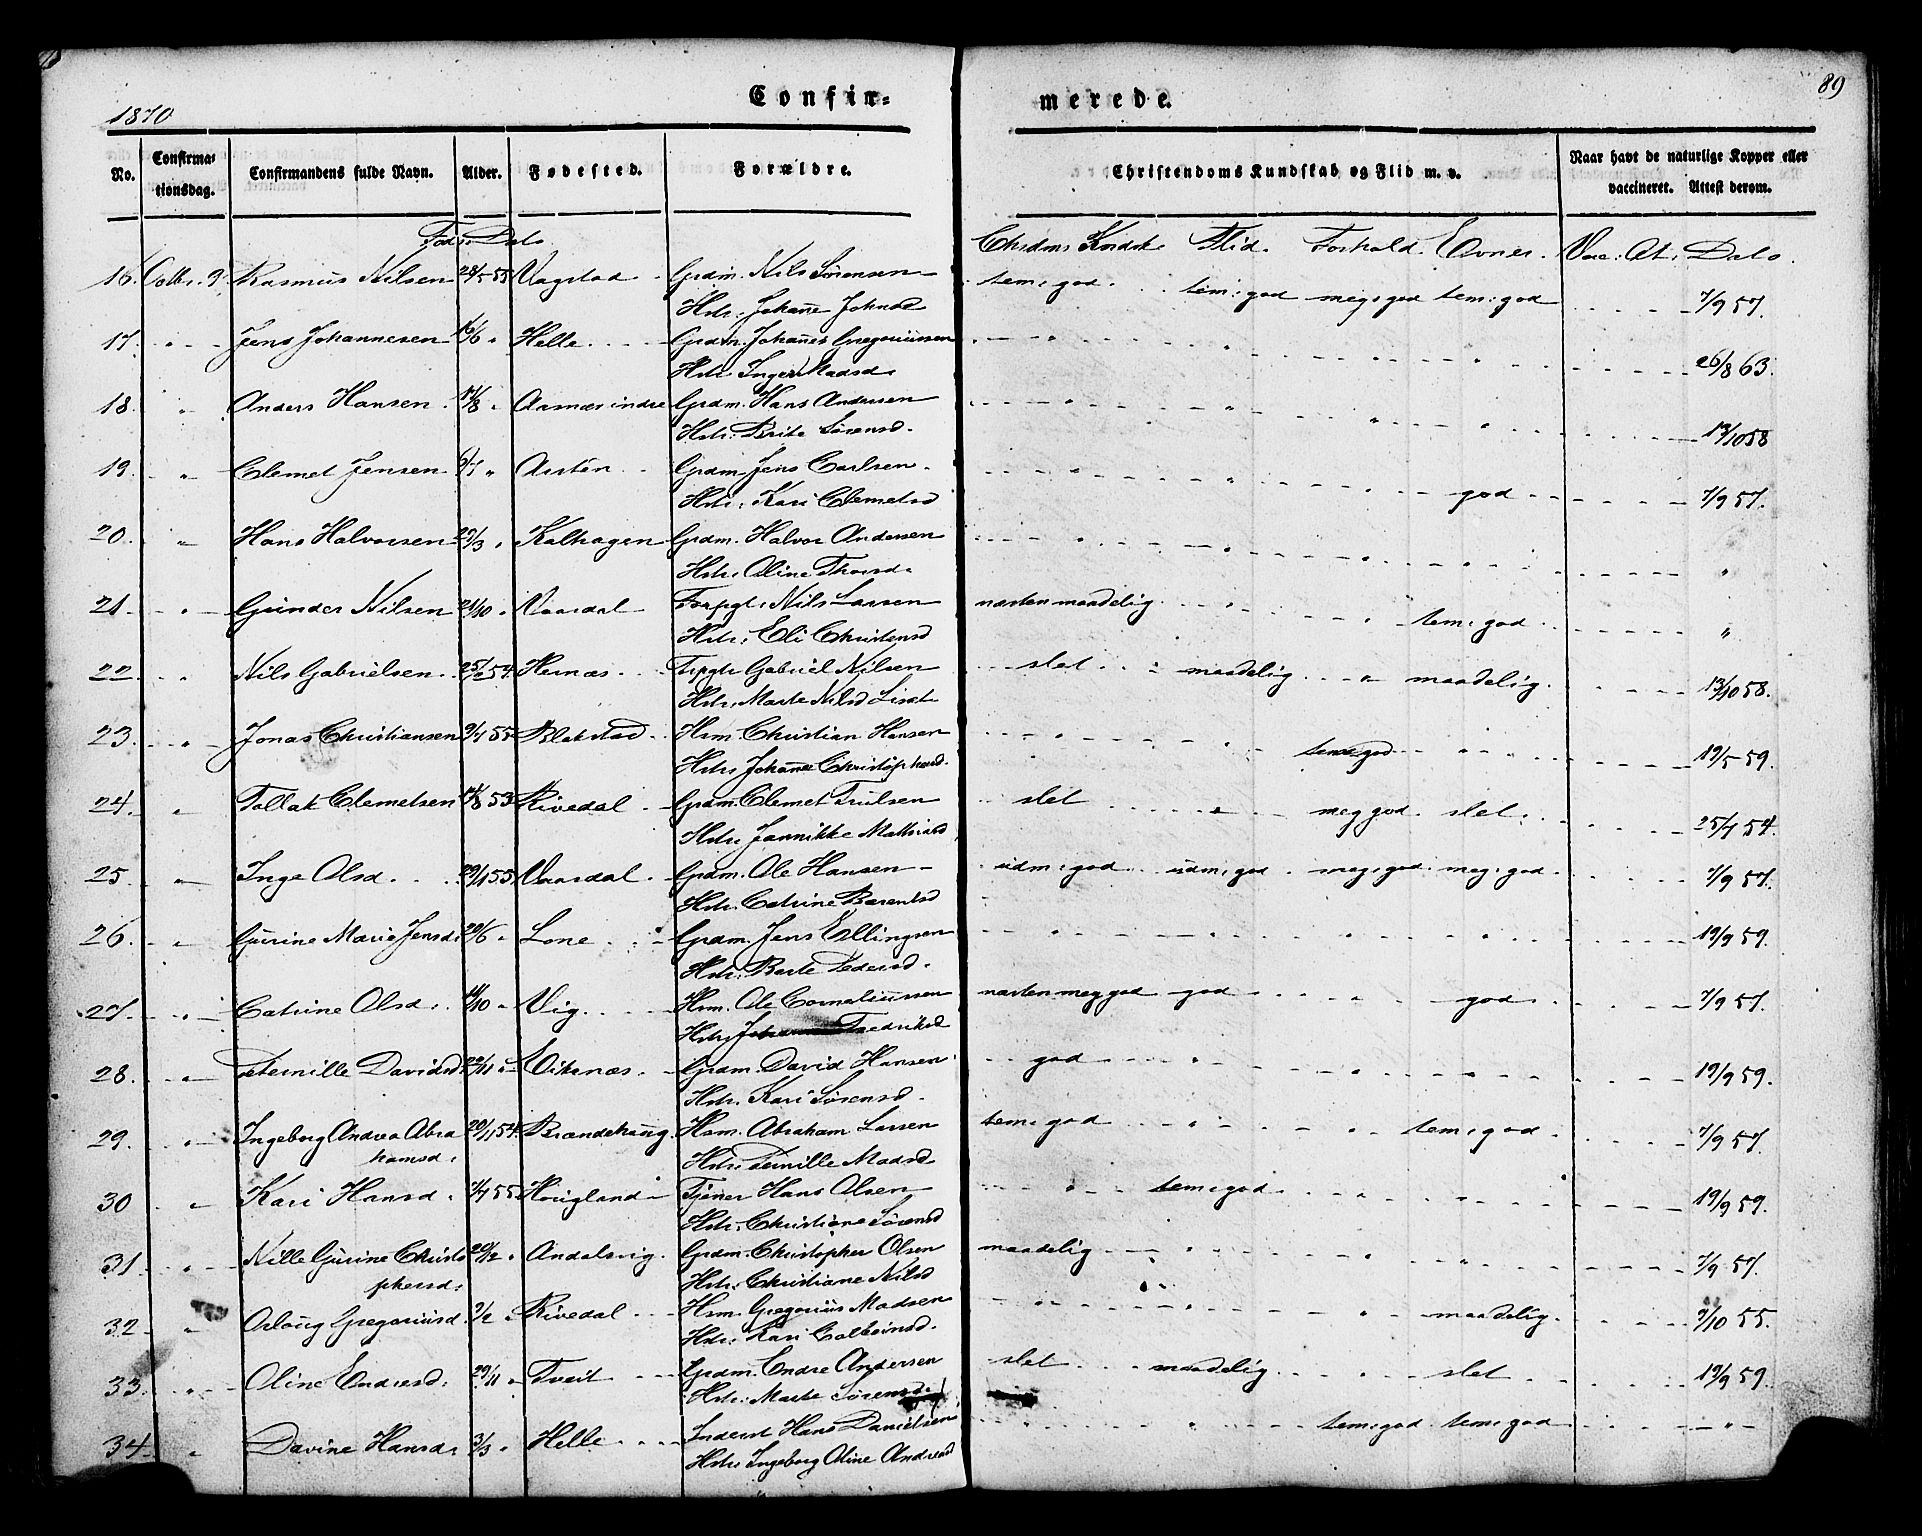 89
1870 Confir= merede.
No. Confirma= tionsdag. Confirmandens fulde Navn. Alder. Fødested. Forældre. Christendoms Kundskab og Flid m. v. Naar havt de naturlige Kopper eller vaccineret. Attest derom.
Føds. Dato Chrdms Kndsk. Flid. Forhold. Evner. Vac. At. Dato.
16. Octbr. 9. Rasmus Nilsen 28/5 55 Vagstad Grdm. Nils Sørensen tem: god. tem: god meg: god tem: god
Hstr. Johanne Johnsd 7/9 57.
17. " Jens Johannesen 16/6 " Helle Grdm. Johannes Gregoriussen "
Hstr. Inger Madsd. 26/8 63.
18. " Anders Hansen 17/8 " Aasnæs indre Grdm. Hans Andersen "
Hstr. Brite Sørensd. 13/10 58
19. " Clemet Jensen 6/7 " Aasten Grdm. Jens Carlsen "
Hstr. Kari Clemetsd god 7/9 57.
20. " Hans Halvorsen 29/3 " Kalhagen Grdm. Halvor Andersen "
Hstr. Oline Thorsd. "
21. " Gunder Nilsen 21/10 " Vaardal Forpgt. Nils Larsen næsten maadelig
Hstr. Eli Christensd tem: god "
22. " Nils Gabrielsen 25/ 54. Hernæs Frpgtr Gabriel Nilsen slet maadelig " maadelig
Hstr. Marte Nilsd 13/10 58.
23. " Jonas Christiansen 9/4 55 Blakstad Hsm. Christian Hansen "
Hstr. Johanne Christophersd. tem: god 19/5 59.
24. " Tollak Clemetsen 14/8 53 Rivedal Grdm. Clemet Trulsen slet " meg god. slet.
Hstr. Jannikke Mathiasd 25/4 54.
25. " Inge Olsd. 29/1 55 Vaardal Grdm. Ole Hansen udm: god. udm: god. meg: god. meg: god.
Hstr. Catrine Berentsd 7/9 57.
26. " Gurine Marie Jensd. 29/6 " Lone Grdm. Jens Ellingsen "
Hstr. Barte Pedersd. 19/9 59.
27. " Catrine Olsd. 14/10 " Vig. Hsm. Ole Corneliussen næsten meg god god " god.
Hstr. Fredriksd 7/9 57.
28. " Pernille Davidsd. 22/11 " Viknæs. Grdm. David Hansen god "
Hstr. Kari Sørensd. 19/9 59.
29. " Ingeborg Andrea Abra 20/11 54. Brændehaug. Hsm. Abraham Larsen tem: god " tem: god.
hamsd. Hstr. Pernille Madsd 7/9 57.
30 " Kari Hansd. 7/4 55 Hougland Tjener Hans Olsen " tem: god
Hstr. Christiane Sørensd 19/9 59.
31. " Nille Gurine Christo 20/2 " Andalsvig. Grdm. Christopher Olsen maadelig "
phersd. Hstr. Christiane Nilsd 7/9 57.
32 " Oslaug Gregoriusd. 7/2 " Rivedal Hsm. Gregorius Madsen " maadelig.
Hstr. Kari Colbeinsd. 7/10 55.
33. " Oline Endresd. 29/11 " Tveit Grdm. Endre Andersen slet maadelig " slet
Hstr. Marte Sørensd. 19/9 59.
34 " Davine Hansd. 3/3 " Helle Inderst Hans Danielsen " tem: god tem: god
Hstr. Ingeborg Oline Andersd "